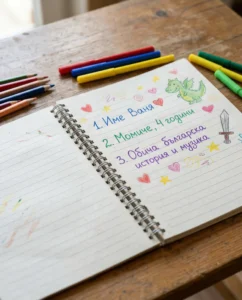 1. Име Ваня
2. Момиче, 4 години
3. Обича българска
история и музика